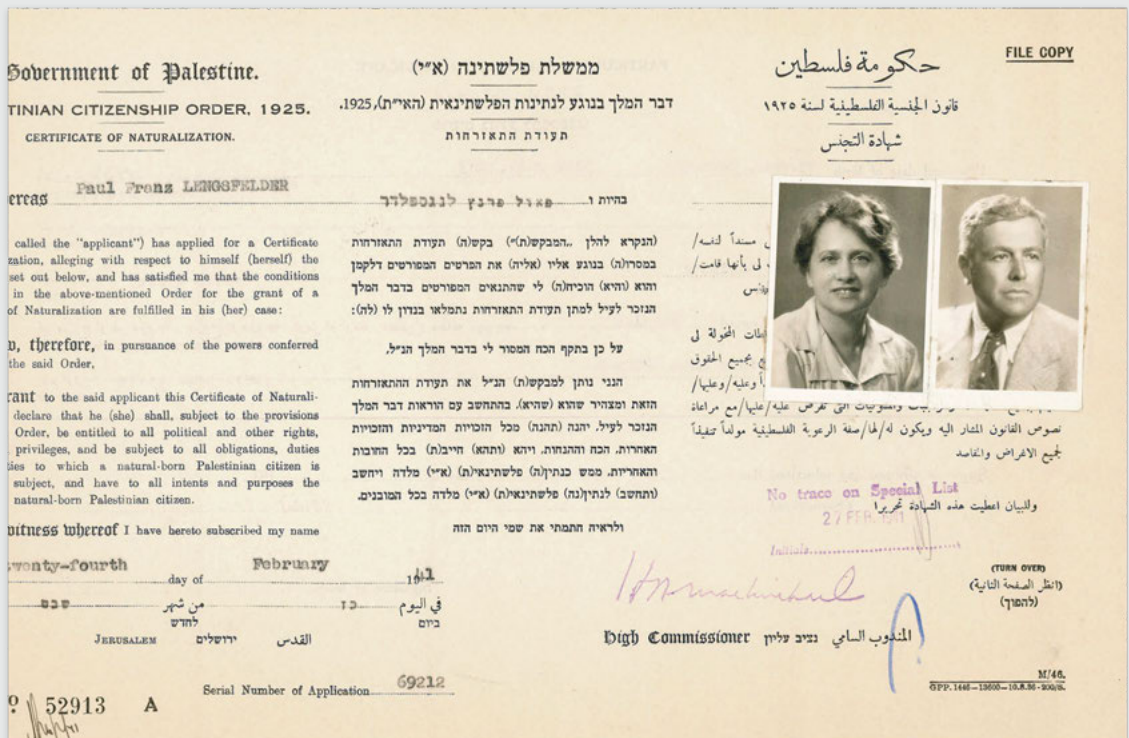 Government of Palestine.
TINIAN CITIZENSHIP ORDER, 1925.
CERTIFICATE OF NATURALIZATION.
ereas Paul Franz LENGSFELDER
called the "applicant") has applied for a Certificate
zation, alleging with respect to himself (herself) the
set out below, and has satisfied me that the conditions
in the above-mentioned Order for the grant of a
of Naturalization are fulfilled in his (her) case:
w, therefore, in pursuance of the powers conferred
the said Order,
rant to the said applicant this Certificate of Naturali-
declare that he (she) shall, subject to the provisions
Order, be entitled to all political and other rights,
privileges, and be subject to all obligations, duties
ties to which a natural-born Palestinian citizen is
subject, and have to all intents and purposes the
natural-born Palestinian citizen.
witness whereof I have hereto subscribed my name
wenty-fourth day of February 1941
ממשלת פלשתינה (א״י)
דבר המלך בנוגע לנתינות הפלשתינאית (הא״ית), 1925.
תעודת התאזרחות
בהיות ו פאול פרנץ לנגספלדר
(הנקרא להלן ״המבקש(ת)״) בקש(ה) תעודת התאזרחות
במסרו(ה) בנוגע אליו (אליה) את הפרטים המפורטים דלקמן
והוא (והיא) הוכיח(ה) לי שהתנאים המפורטים בדבר המלך
הנזכר לעיל למתן תעודת התאזרחות נתמלאו בנדון לו (לה):
על כן בתקף הכח המסור לי בדבר המלך הנ״ל,
הנני נותן למבקש(ת) הנ״ל את תעודת ההתאזרחות
הזאת ומצהיר שהוא (שהיא), בהתחשב עם הוראות דבר המלך
הנזכר לעיל, יהנה (תהנה) מכל הזכויות המדיניות והזכויות
האחרות, הכח וההנחות, ויהא (ותהא) חייב(ת) בכל החובות
והאחריות, ממש כנתין(ה) פלשתינאי(ת) (א״י) מלדה ויחשב
(ותחשב) לנתין(נה) פלשתינאי(ת) (א״י) מלדה בכל המובנים.
ולראיה חתמתי את שמי היום הזה
FILE COPY
حكومة فلسطين
قانون الجنسية الفلسطينية لسنة ١٩٢٥
شهادة التجنس
مسنداً لنفسه/
لي بأنها قامت/
المخولة لي
بجميع الحقوق
وعليه/وعليها/
تفرض عليه/عليها/مع مراعاة
نصوص القانون المشار اليه ويكون له/لها/صفة الرعوية الفلسطينية مولداً تنفيذاً
لجميع الاغراض والمقاصد
وللبيان اعطيت هذه الشهادة تحريرا
No trace on Special List
27 FEB. 1941
Initials
في اليوم כז من شهر שבט
ביום לחדש
JERUSALEM ירושלים القدس
High Commissioner נציב עליון المندوب السامي
(TURN OVER)
(انظر الصفحة الثانية)
(להפוך)
Serial Number of Application 69212
52913 A
M/46.
GPP. 1446—13600—10.8.36—200/B.